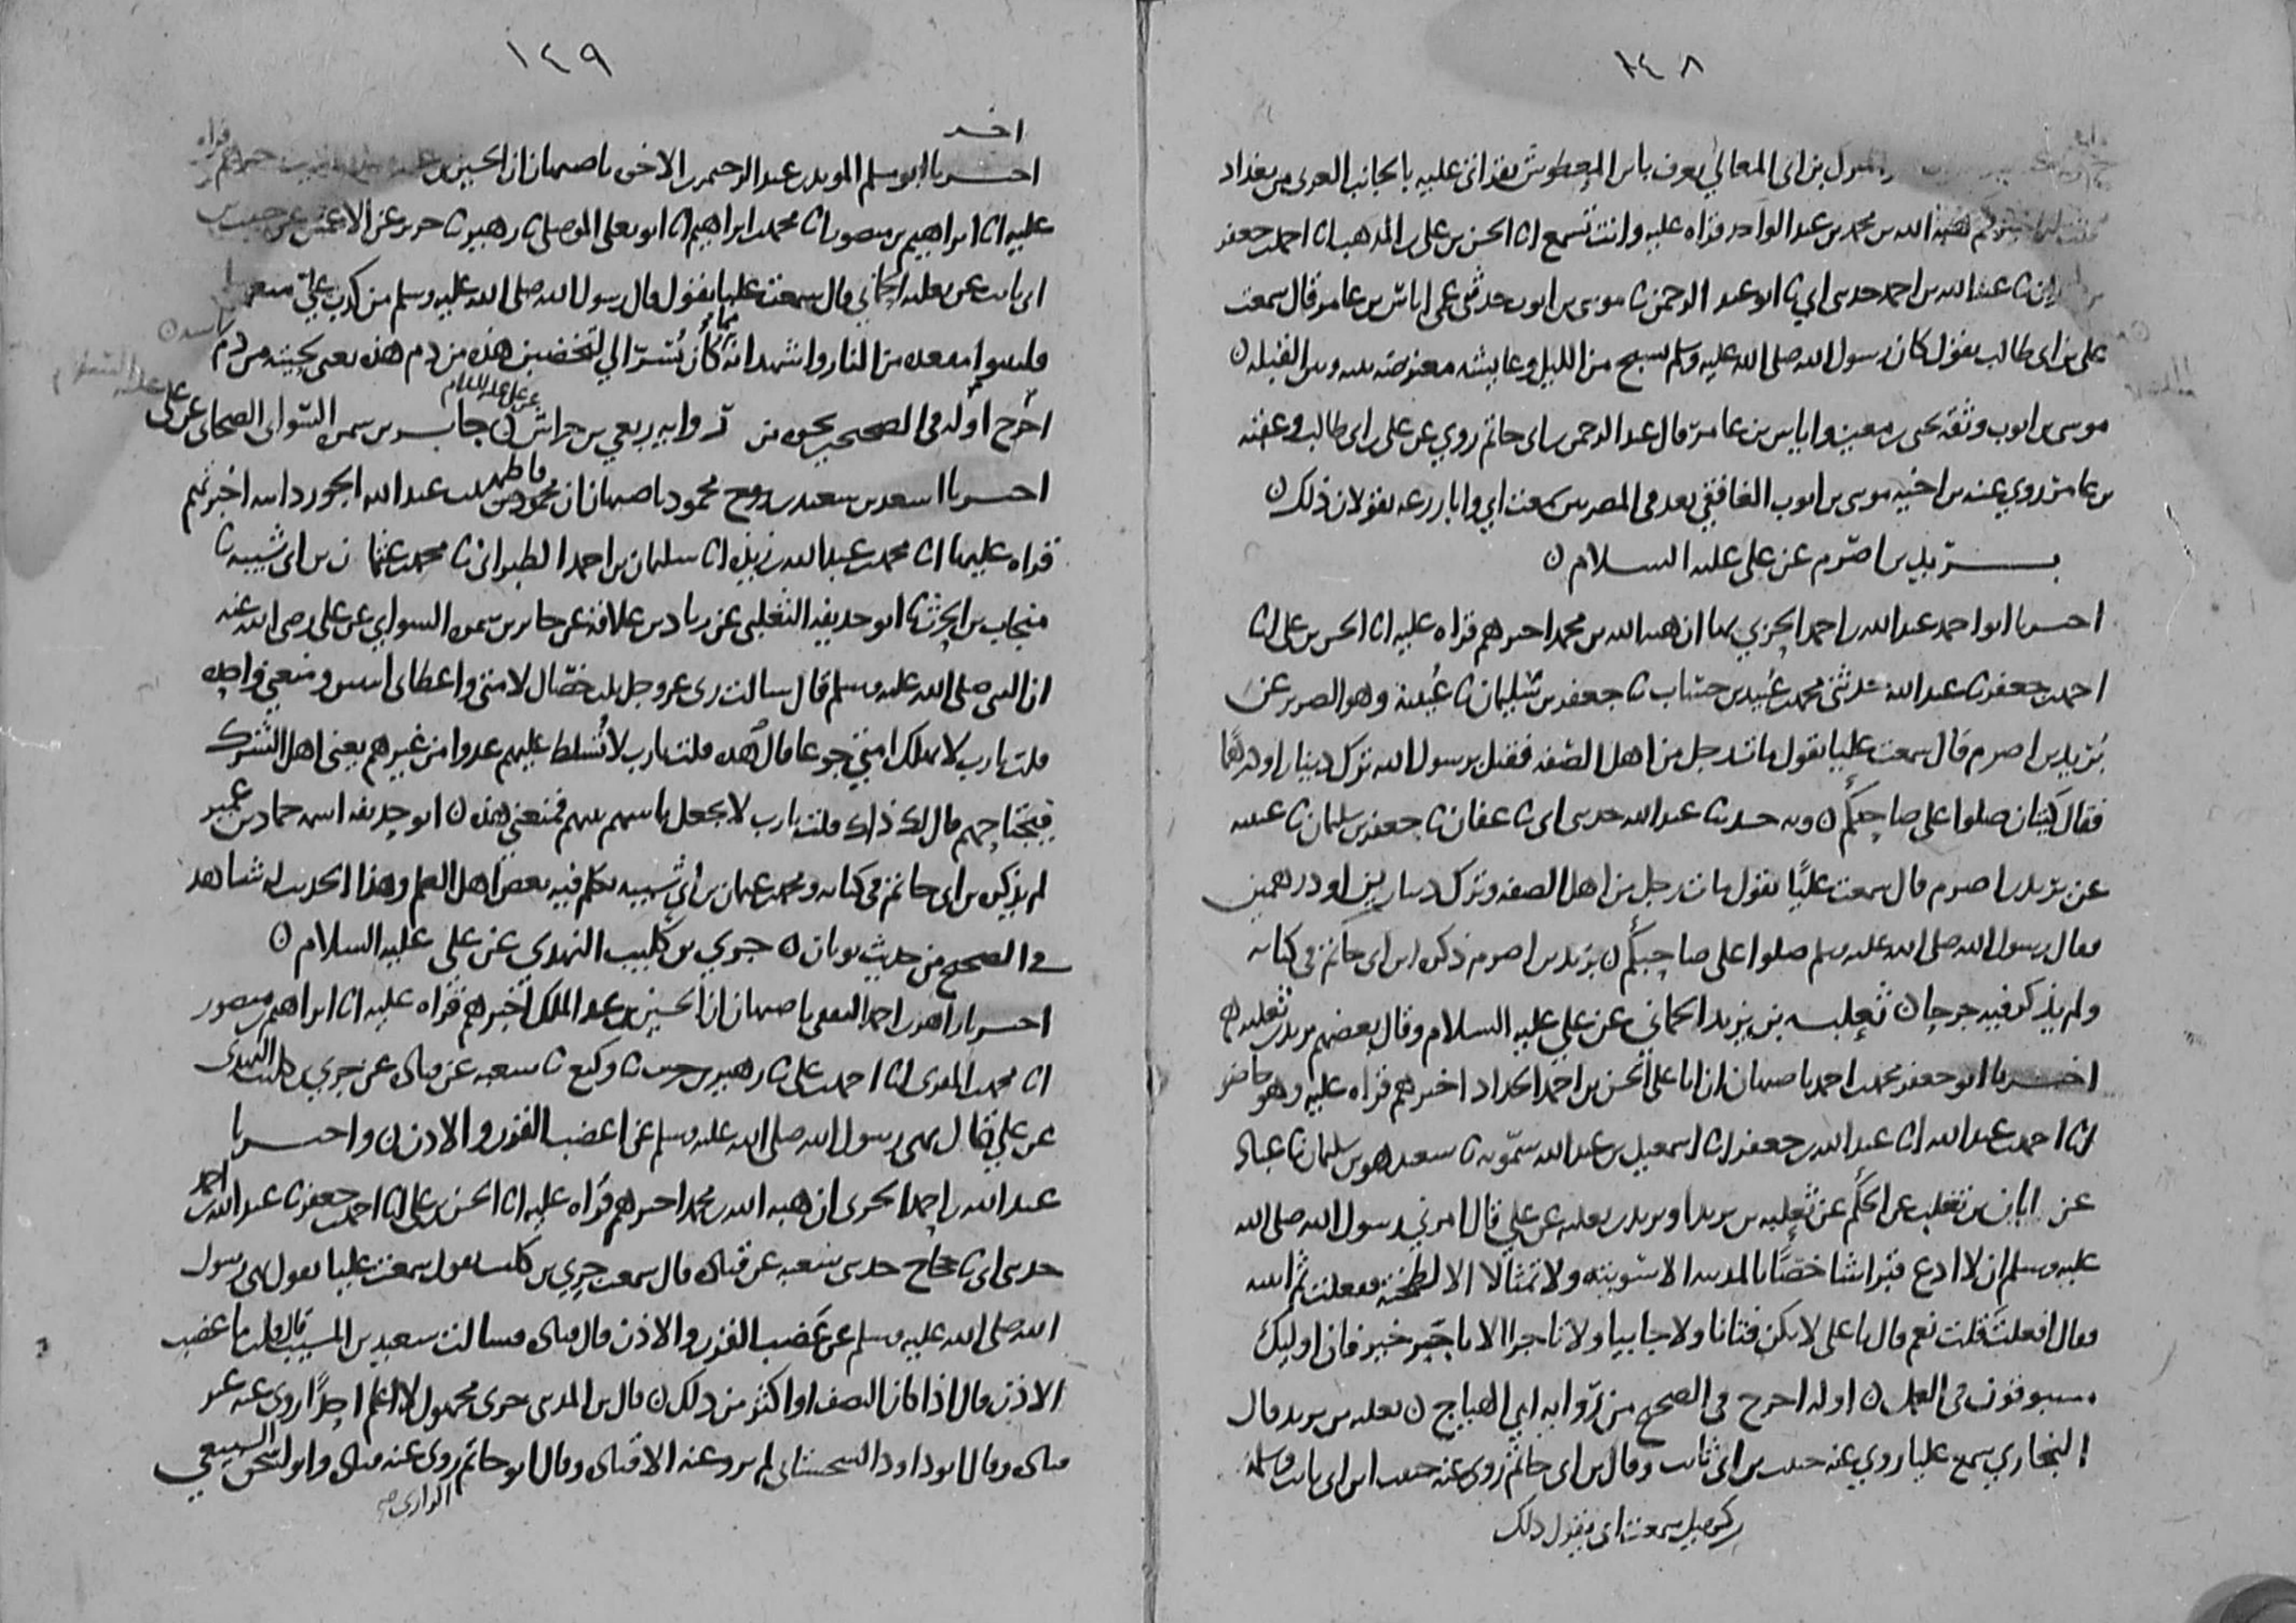 ١٤٨
المبارك بن ابى المعالي يعرف بابن المعطوش بقراتى عليه بالجانب الغربى من بغداد
هبة الله بن محمد بن عبد الواحد قراه عليه وانت تسمع انا الحسن بن على بن المذهب انا احمد بن جعفر
عبد الله بن احمد حدثنى ابي نا ابو عبد الرحمن نا موسى بن ايوب حدثنى عمى اياس بن عامر قال سمعت
على بن ابى طالب يقول كان رسول الله صلى الله عليه وسلم يسبح من الليل وعايشه معترضه بينه وبين القبله ن
موسى بن ايوب وثقه يحيى بن معين واياس بن عامر قال عبد الرحمن بن ابى حاتم روي عن على بن ابى طالب وعقبه
بن عامر روي عنه بن اخيه موسى بن ايوب الغافقي يعد في المصريين سمعت ابي وابا زرعه يقولان ذلك ن
بريد بن اصرم عن على عليه السلام ن
اخبرنا ابو احمد عبد الله بن احمد الحربي بها ان هبه الله بن محمد اخبرهم قراه عليه انا الحسن بن على انا
احمد بن جعفر نا عبد الله حدثنى محمد بن عبيد بن حساب نا جعفر بن سليمان نا عتيبة وهو الضرير عن
بريد بن اصرم قال سمعت عليا يقول مات رجل من اهل الصفه فقيل يرسول الله ترك دينارا ودرهما
فقال كيتان صلوا على صاحبكم ن وبه حدثنا عبد الله حدثنى ابى نا عفان نا جعفر بن سليمان نا عتيبه
عن بريد بن اصرم قال سمعت عليًا يقول مات رجل من اهل الصفه وترك دينارين او درهمين
فقال رسول الله صلى الله عليه وسلم صلوا على صاحبكم ن بريد بن اصرم ذكره ابن ابى حاتم فى كتابه
ولم يذكر فيه جرحا ن ثعلبه بن يزيد الحماني عن علي عليه السلام وقال بعضهم يزيد بن ثعلبه ن
اخبرنا ابو جعفر محمد بن احمد باصبهان ان ابا على الحسن بن احمد الحداد اخبرهم قراه عليه وهو حاضر
انا احمد بن عبد الله انا عبد الله بن جعفر انا اسمعيل بن عبد الله سمويه نا سعيد هو بن سليمان نا عباد
عن ابان بن تغلب عن الحكم عن ثعلبه بن يزيد او يزيد بن ثعلبه عن علي قال امرني رسول الله صلى الله
عليه وسلم ان لا ادع قبرا شاخصًا بالمدينه الا سويته ولا تمثالا الا لطخته ففعلت ثم اتيته
فقال افعلت قلت نعم قال يا على لا تكن فتانا ولا جابيا ولا تاجرا الا تاجر خير فان اوليك
مسبوقون فى العمل ن اوله اخرج في الصحيح من روايه ابي الهياج ن ثعلبه بن يزيد قال
البخاري سمع عليا روي عنه حبيب بن ابى ثابت وقال بن ابى حاتم روى عنه حبيب ابن ابى ثابت وسلمه
بن كهيل سمعت ابى يقول ذلك
١٤٩
اخبرنا ابو مسلم المويد بن عبد الرحيم بن الاخوه باصبهان ان الحسين بن
عليه انا ابراهيم بن منصور انا محمد بن ابراهيم انا ابو يعلى الموصلى نا زهير نا جرير عن الاعمش عن حبيب بن
ابى ثابت عن ثعلبه الحماني قال سمعت عليا يقول قال رسول الله صلى الله عليه وسلم من كذب علي متعمدا
فليتبوا مقعده من النار واشهد انه كان مما يُسرّ الي لتخضبن هذه من دم هذه يعنى لحيته من دم راسه ن
اخرج اوله فى الصحيح بنحوه من روايه ربعي بن حراش عن على عليه السلام ن جابر بن سمره السوائى الصحابى عن على عليه السلام
اخبرنا اسعد بن سعيد بن روح محمود باصبهان ان فاطمه بنت عبد الله الجوزدانيه اخبرتهم
قراه عليها انا محمد بن عبد الله بن ريذه انا سليمان بن احمد الطبرانى نا محمد بن عثمان بن ابى شيبه نا
منجاب بن الحرث نا ابو حذيفه الثعلبى عن زياد بن علاقه عن جابر بن سمره السوائي عن على رضى الله عنه
ان النبى صلى الله عليه وسلم قال سالت ربى عز وجل ثلث خصال لامتى واعطانى اثنتين ومنعني واحده
قلت يارب لا تهلك امتي جوعا قال هذه قلت يارب لا تُسلط عليهم عدوا من غيرهم يعنى اهل الشرك
فيجتاحهم قال لك ذلك قلت يارب لا تجعل باسهم بينهم فمنعني هذه ن ابو حذيفه اسمه حماد بن عمير
لم يذكره بن ابى حاتم فى كتابه ومحمد بن عثمان بن أبي شيبه تكلم فيه بعض اهل العلم وهذا الحديث له شاهد
فى الصحيح من حديث ثوبان ن جري بن كليب النهدي عن علي عليه السلام ن
اخبرنا زاهر بن احمد الثقفى باصبهان ان الحسين بن عبد الملك اخبرهم قراه عليه انا ابراهيم بن منصور
انا محمد بن المقرى انا احمد بن على نا زهير بن حرب نا وكيع نا شعبه عن قتاده عن جري بن كليب النهدى
عن علي قال نهى رسول الله صلى الله عليه وسلم عن اعضب القرن والاذن ن واخبرنا
عبد الله بن احمد الحربى ان هبه الله بن محمد اخبرهم قراه عليه انا الحسن بن على انا احمد بن جعفر نا عبد الله بن احمد
حدثنى ابى نا حجاج حدثنى شعبه عن قتاده قال سمعت جري بن كليب يقول سمعت عليا يقول نهى رسول
الله صلى الله عليه وسلم عن عَضب القرن والاذن قال قتاده فسالت سعيد بن المسيب قال قلت ما عضب
الاذن قال اذا كان النصف او اكثر من ذلك ن قال بن المدينى جرى مجهول لا اعلم احدًا روى عنه غير
قتاده وقال ابو داود السجستانى لم يرو عنه الا قتاده وقال ابو حاتم روى عنه قتاده وابو اسحق السبيعي